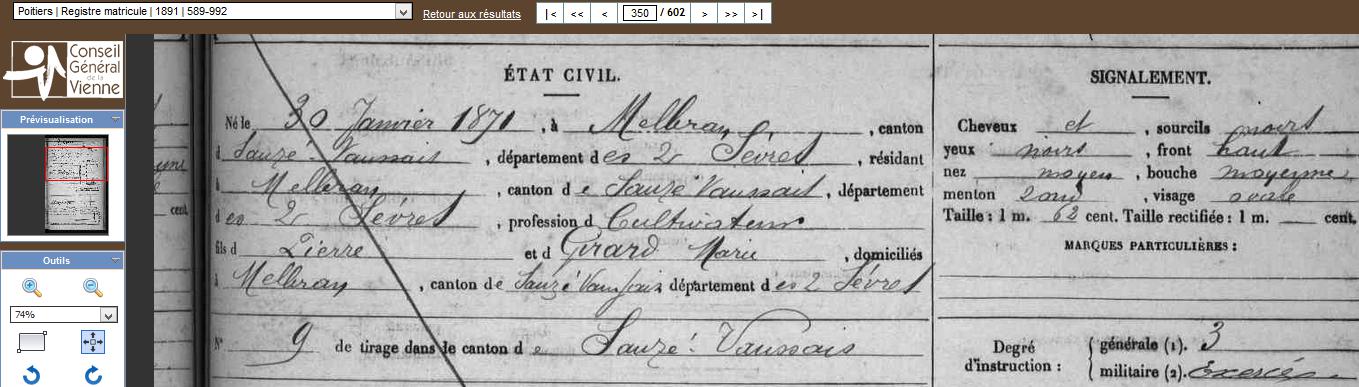 Poitiers | Registre matricule | 1891 | 589-992
Retour aux résultats
|<
<<
<
350 / 602
>
>>
>|
Conseil
Général
de la
Vienne
Prévisualisation
Outils
74%
ÉTAT CIVIL.
Né le 30 Janvier 1871, à Melleran, canton
d Sauzé-Vaussais, département des 2 Sèvres, résidant
à Melleran, canton de Sauzé Vaussais, département
des 2 Sèvres profession d Cultivateur
fils d Pierre et d Girard Marie, domiciliés
à Melleran, canton de Sauzé Vaussais département des 2 Sèvres
N° 9 de tirage dans le canton de Sauzé-Vaussais
cent.
SIGNALEMENT.
Cheveux et, sourcils noirs
yeux noirs, front haut
nez moyen, bouche moyenne
menton rond, visage ovale
Taille : 1 m. 62 cent. Taille rectifiée : 1 m. cent.
MARQUES PARTICULIÈRES :
Degré
d'instruction :
générale (1). 3
militaire (2). Exercé